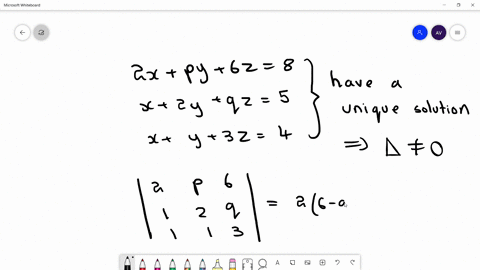 Microsoft Whiteboard
AV
2x + py + 6z = 8
x + 2y + qz = 5
x + y + 3z = 4
have a
unique solution
⇒ Δ ≠ 0
| 2 p 6 |
| 1 2 q | = 2(6-q
| 1 1 3 |